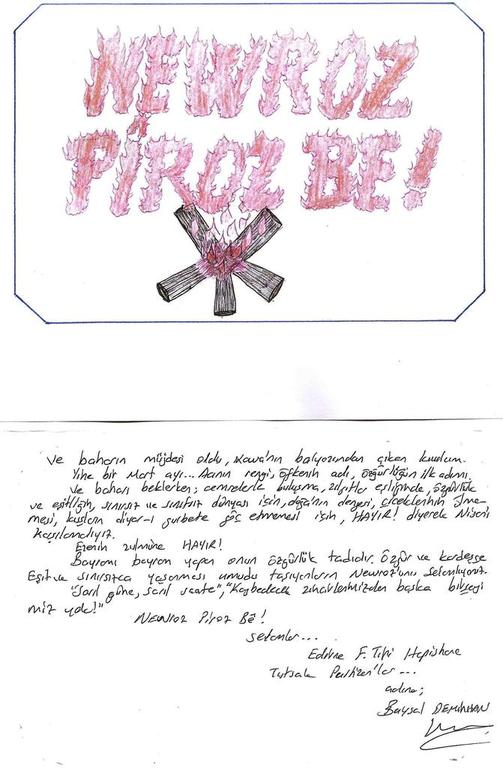 NEWROZ
PİROZ BE!
Ve baharın müjdesi oldu, Kawa'nın balyozundan çıkan kıvılcım.
Yine bir Mart ayı... Acının rengi, öfkenin adı, özgürlüğün ilk adımı.
Ve baharı beklerken; cemrelerle buluşma, zılgıtlar eşliğinde, özgürlük
ve eşitliğin, sınırsız ve sınıfsız dünyası için, doğa'nın dengesi, çiçeklerinin ölme-
mesi, kuşların diyar-ı gurbete göç etmemesi için, HAYIR! diyerek Nisan'ı
karşılamalıyız.
zulmüne HAYIR!
Bayramı bayram yapan onun özgürlük tadıdır. Özgür ve kardeşçe
Eşit ve sınırsızca yaşanması umudu taşıyanların Newroz'unu Selamlıyoruz.
"Sarıl güne, sarıl saate", "Kaybedecek zincirlerimizden başka bir şeyi
miz yok!"
Newroz Piroz Bê!
Selamlar...
Edirne F Tipi Hapishane
Tutsak Partizan'lar...
adına;
Baysal DEMİRHAN